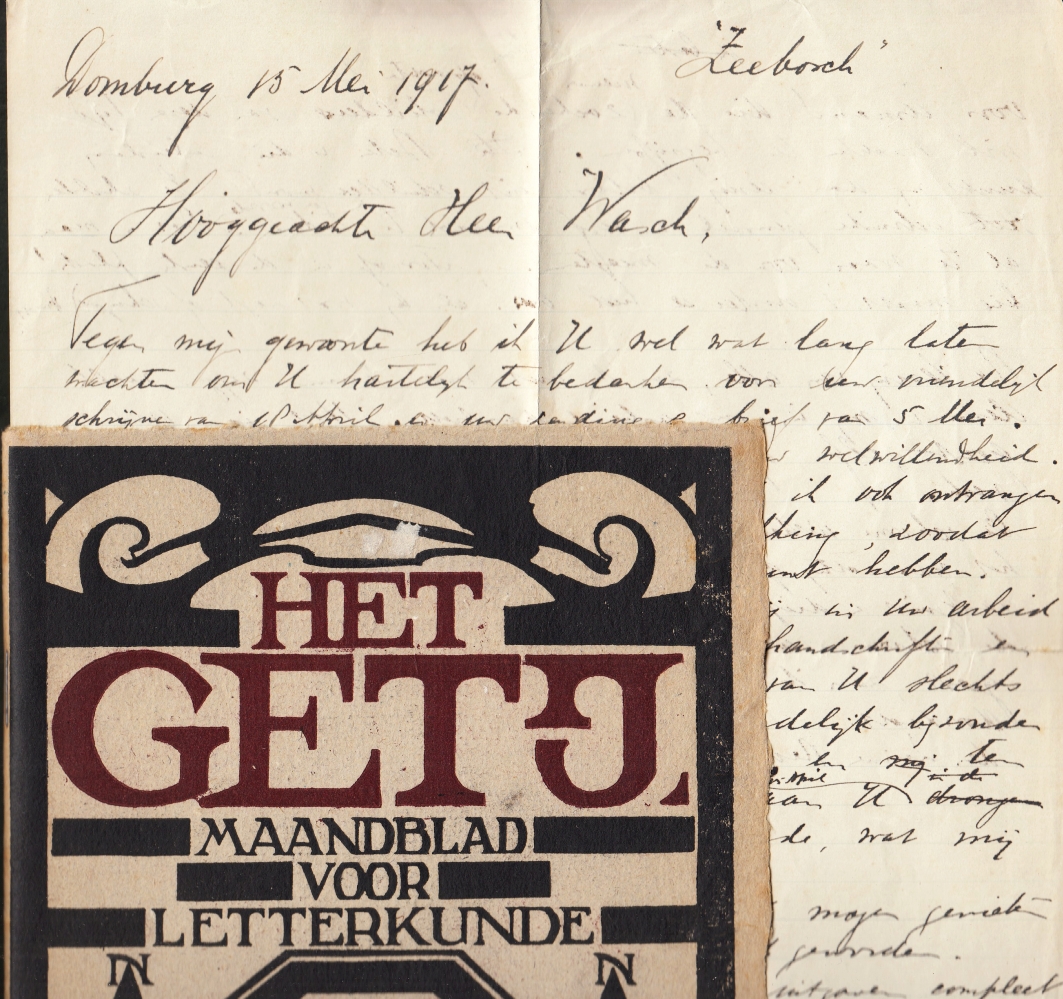 "Zeebosch"
Domburg 15 Mei 1917.
Hooggeachte Heer Wasch,
Tegen mijn gewoonte heb ik U wel wat lang laten
wachten om U hartelijk te bedanken voor uw vriendelijk
schrijven van 18 April en uw zending & brief van 5 Mei.
welwillendheid.
ik ook ontvangen
zoodat
hebben.
in Uw arbeid
handschriften en
van U slechts
bijzonder
en mij te
aan U drongen
de, wat mij
mogen genieten
geworden.
uitgaven compleet
HET
GETIJ
MAANDBLAD
VOOR
LETTERKUNDE